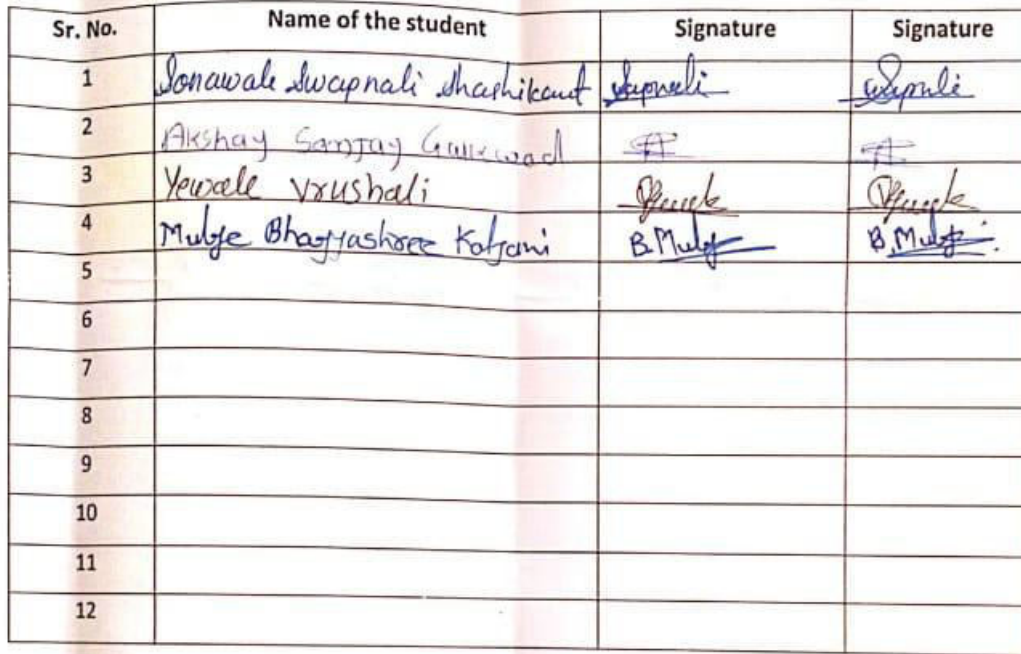 Sr. No. Name of the student Signature Signature
1 Sonawale Swapnali Shashikant Swapnali Swapnali
2 Akshay Sanjay Gaikwad
3 Yewale Vrushali
4 Mulye Bhagyashree Kalyani B.Mulye B.Mulye
5
6
7
8
9
10
11
12